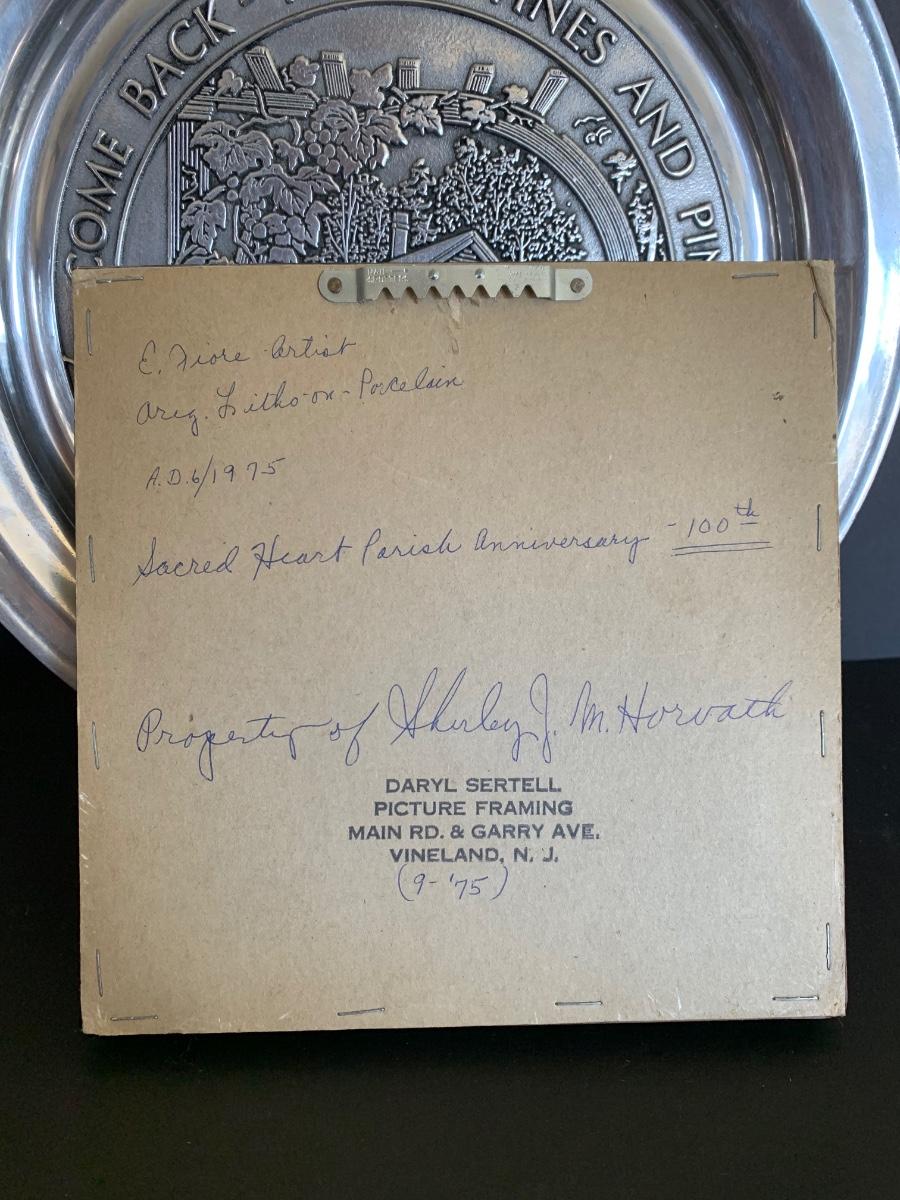 COME BACK
VINES AND PIN
E. Fiore Artist
Orig. Litho-on-Porcelain
A.D. 6/1975
Sacred Heart Parish Anniversary - 100th
Property of Shirley J. M. Horvath
DARYL SERTELL
PICTURE FRAMING
MAIN RD. & GARRY AVE.
VINELAND, N. J.
(9-'75)